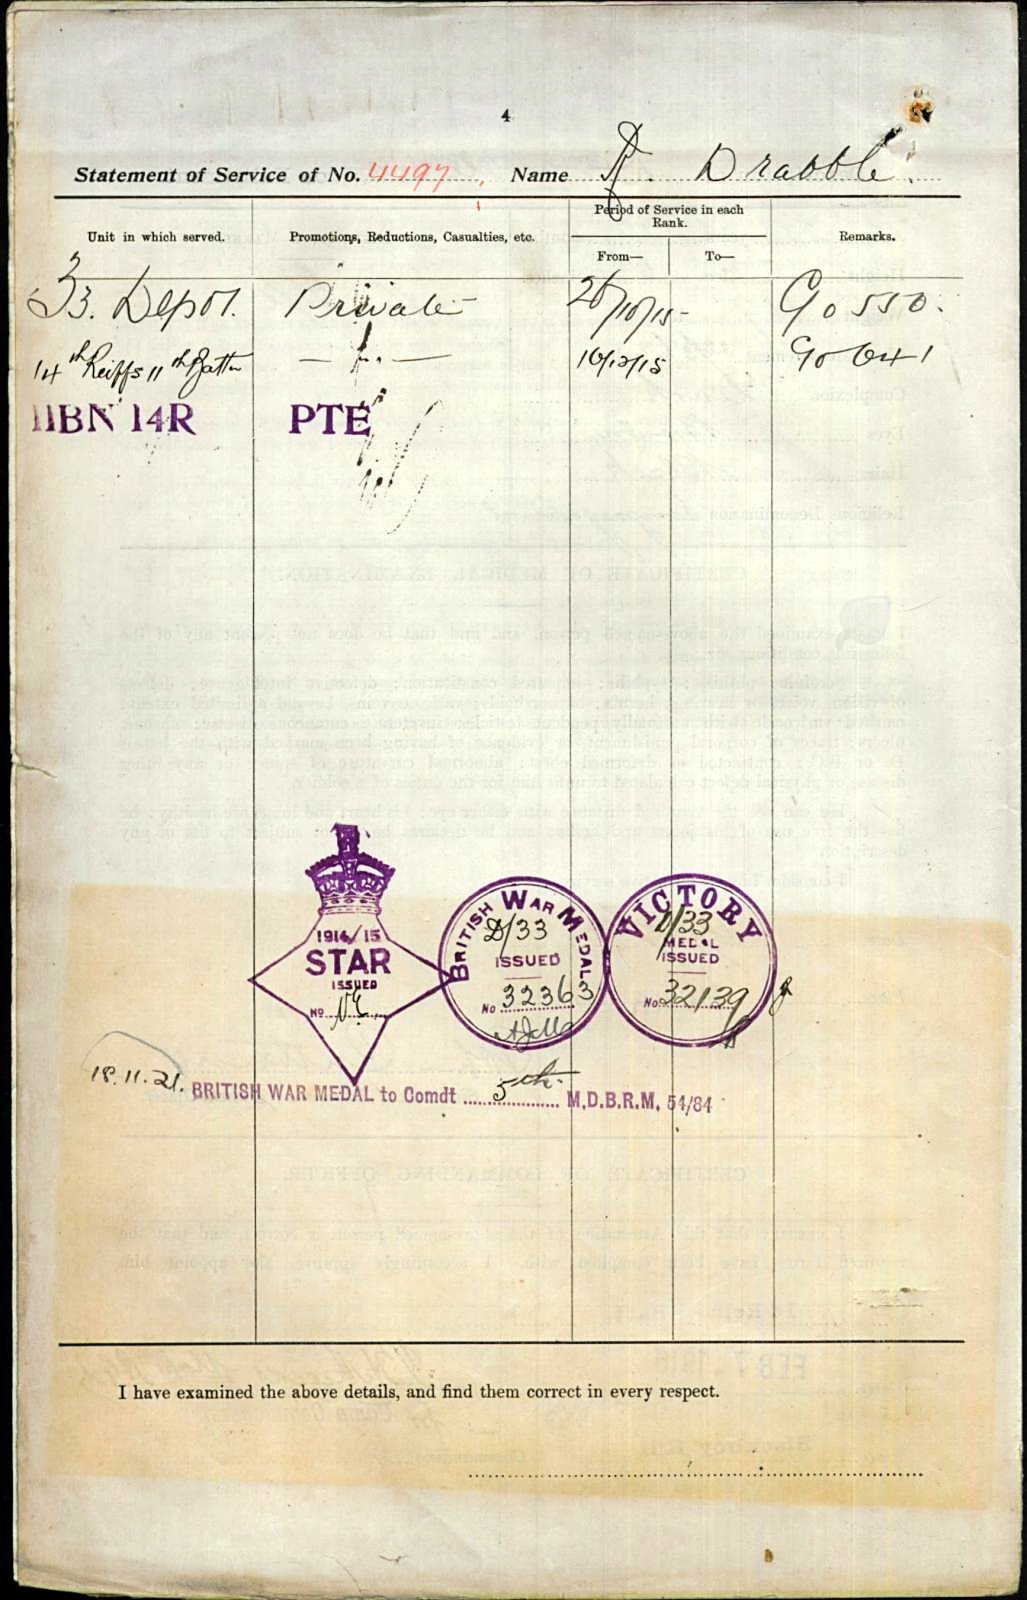 4
Statement of Service of No. 4497 Name R. Drabble.
Unit in which served. Promotions, Reductions, Casualties, etc. Period of Service in each Rank. Remarks.
From— To—
Depot. Private 26/10/15 Go 550.
14th Reiffs 11th Battn 16/12/15 Go 641
11BN 14R PTE
1914/15
STAR
ISSUED
No.
BRITISH WAR MEDAL
D/33
ISSUED
No 32363
VICTORY
D/33
MEDAL
ISSUED
No 32139
18.11.21. BRITISH WAR MEDAL to Comdt 5th M.D.B.R.M. 54/84
I have examined the above details, and find them correct in every respect.